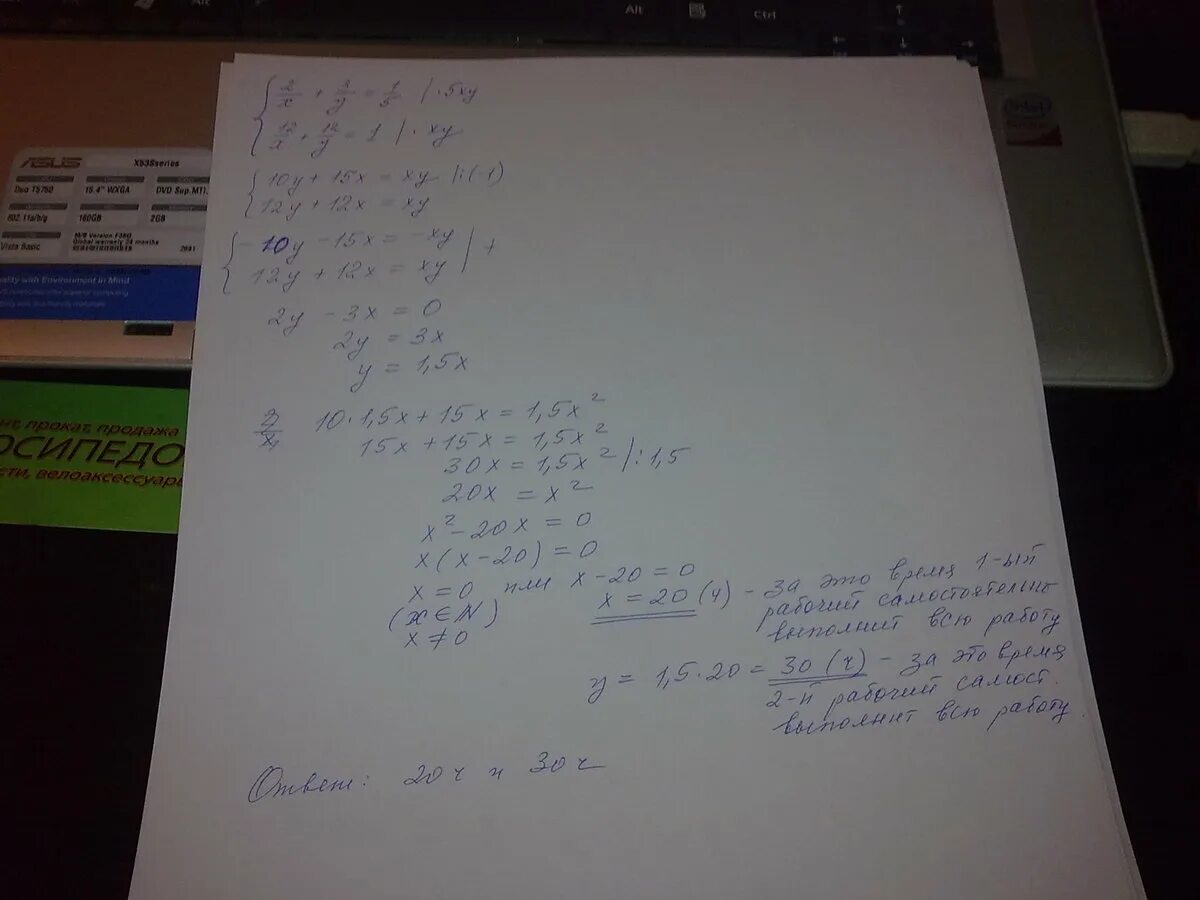 Alt
Alt
Ctrl
intel
ASUS
X53Sseries
Duo T5750
15.4" WXGA
DVD Sup.MTI.
802.11a/b/g
160GB
2GB
Vista Basic
Global warranty 24 months
ality with Environment in Mind
нт, прокат, продажа
ОСИПЕДО
сти, велоаксессуары
2/x + 3/y = 1/5 | · 5xy
12/x + 12/y = 1 | · xy
10y + 15x = xy |:(-1)
12y + 12x = xy
- 10y - 15x = - xy | +
12y + 12x = xy
2y - 3x = 0
2y = 3x
y = 1,5x
10 · 1,5x + 15x = 1,5x²
15x + 15x = 1,5x²
30x = 1,5x² |: 1,5
20x = x²
x² - 20x = 0
x(x - 20) = 0
x = 0 или x - 20 = 0
(x ∈ N)
x ≠ 0
x = 20 (ч) - за это время 1-ый
рабочий самостоятельно
выполнит всю работу
y = 1,5 · 20 = 30 (ч) - за это время
2-й рабочий самост.
выполнит всю работу.
Ответ: 20 ч и 30 ч